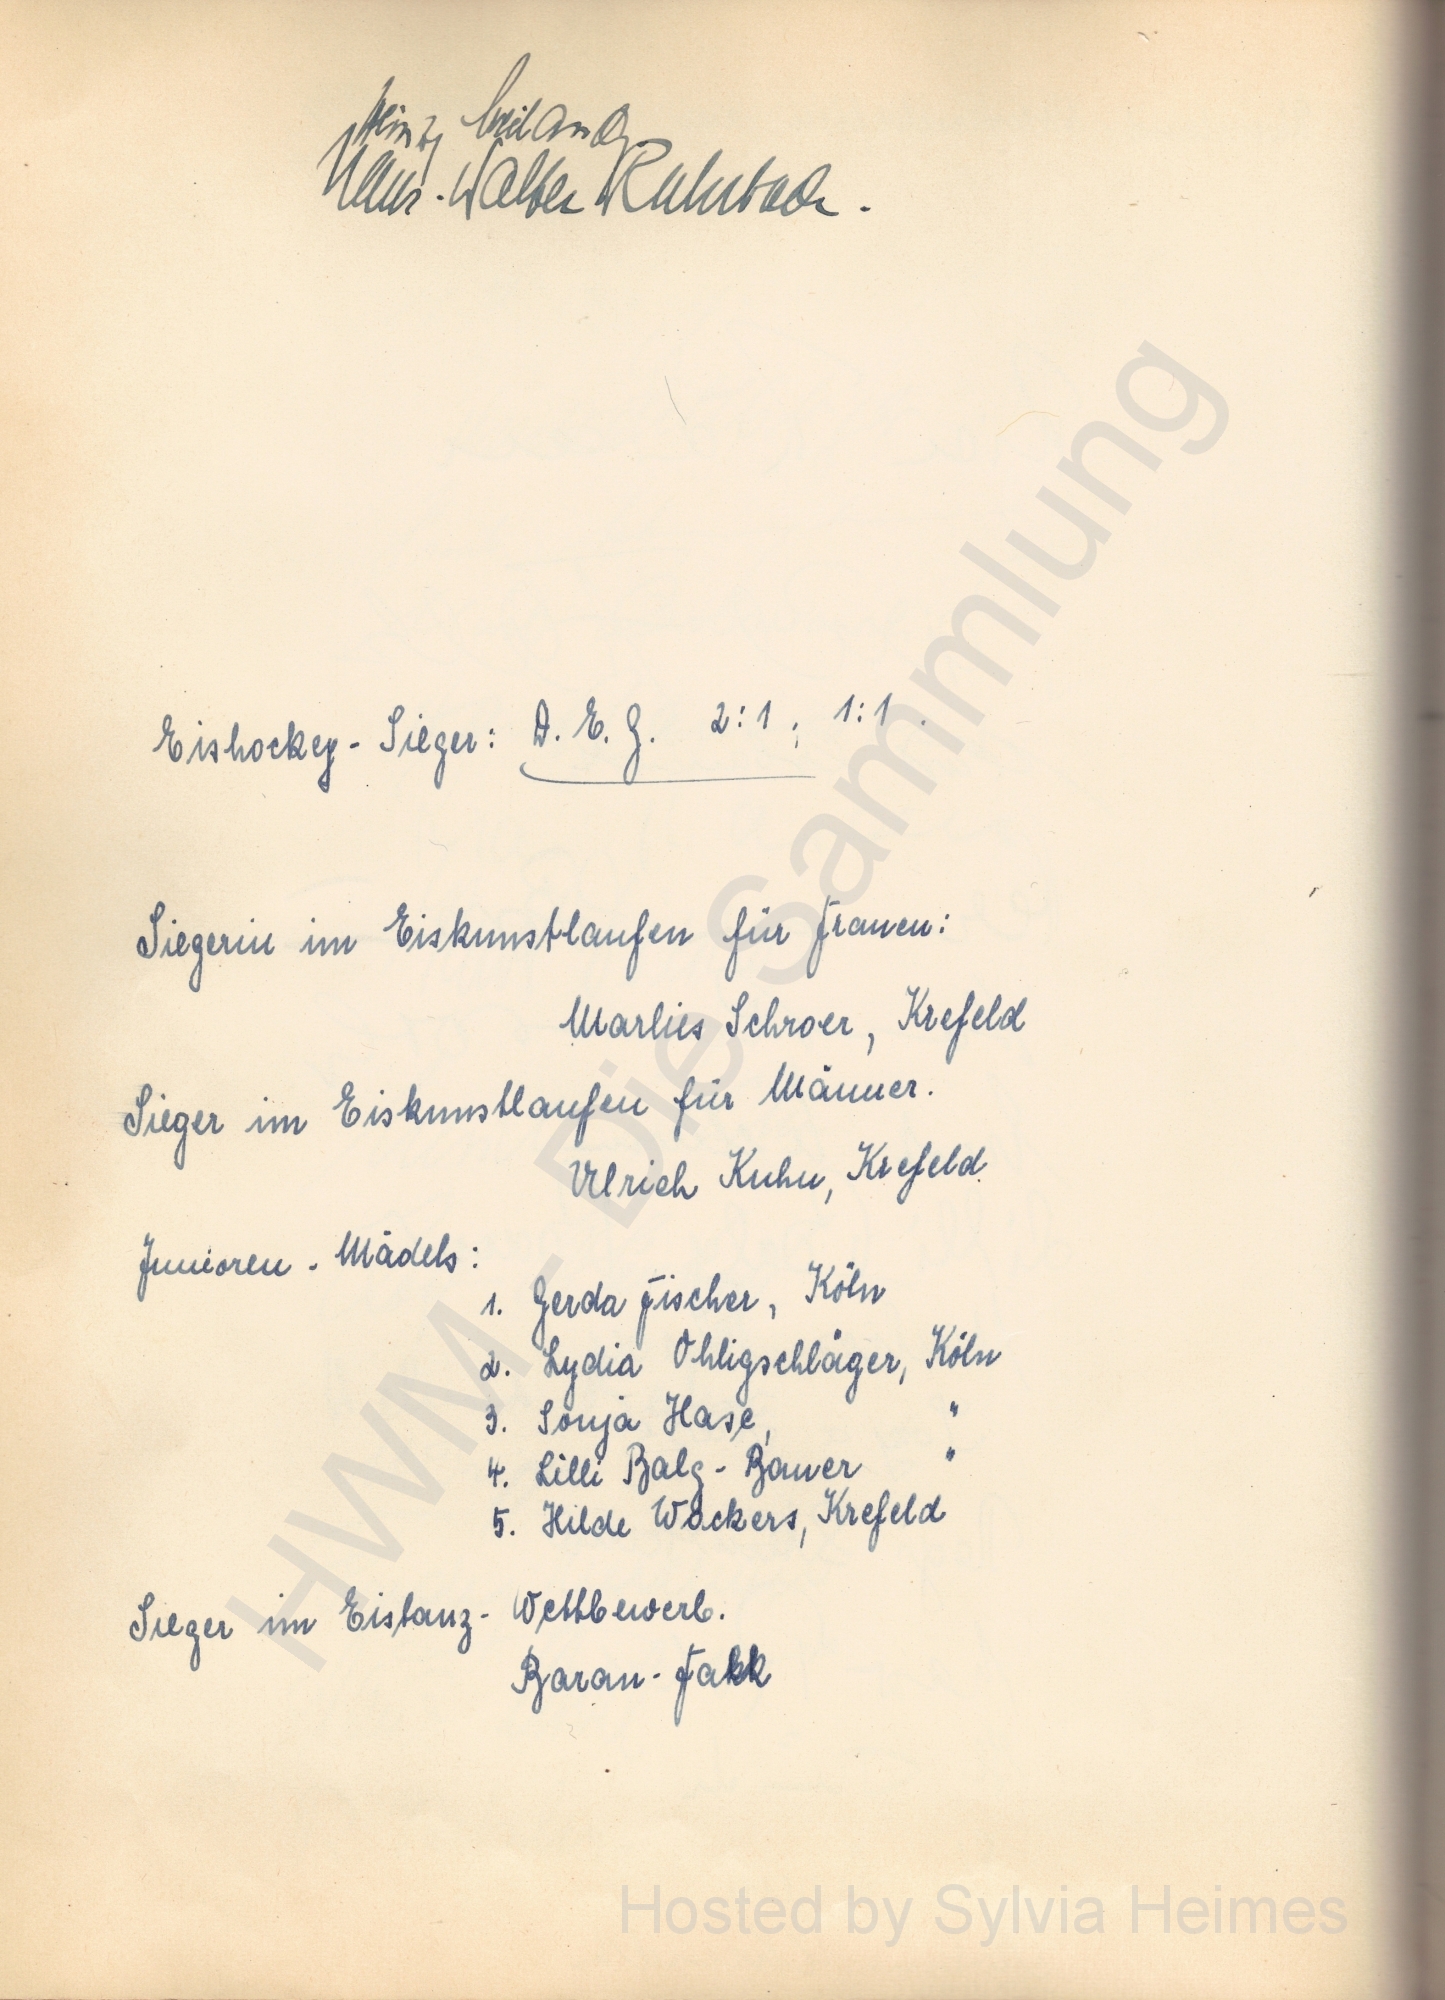 Heinz
Klaus-Walter Ruhrbach.
Eishockey-Sieger: D.E.G. 2:1; 1:1.
Siegerin im Eiskunstlaufen für Frauen:
Marlies Schroer, Krefeld
Sieger im Eiskunstlaufen für Männer.
Ulrich Kuhn, Krefeld.
Junioren-Mädels:
1. Gerda Fischer, Köln
2. Lydia Ohligschläger, Köln
3. Sonja Hase, "
4. Lilli Balg-Bauer "
5. Hilde Wackers, Krefeld
Sieger im Eistanz-Wettbewerb.
Baran-Fakk
HWM - Die Sammlung
Hosted by Sylvia Heimes